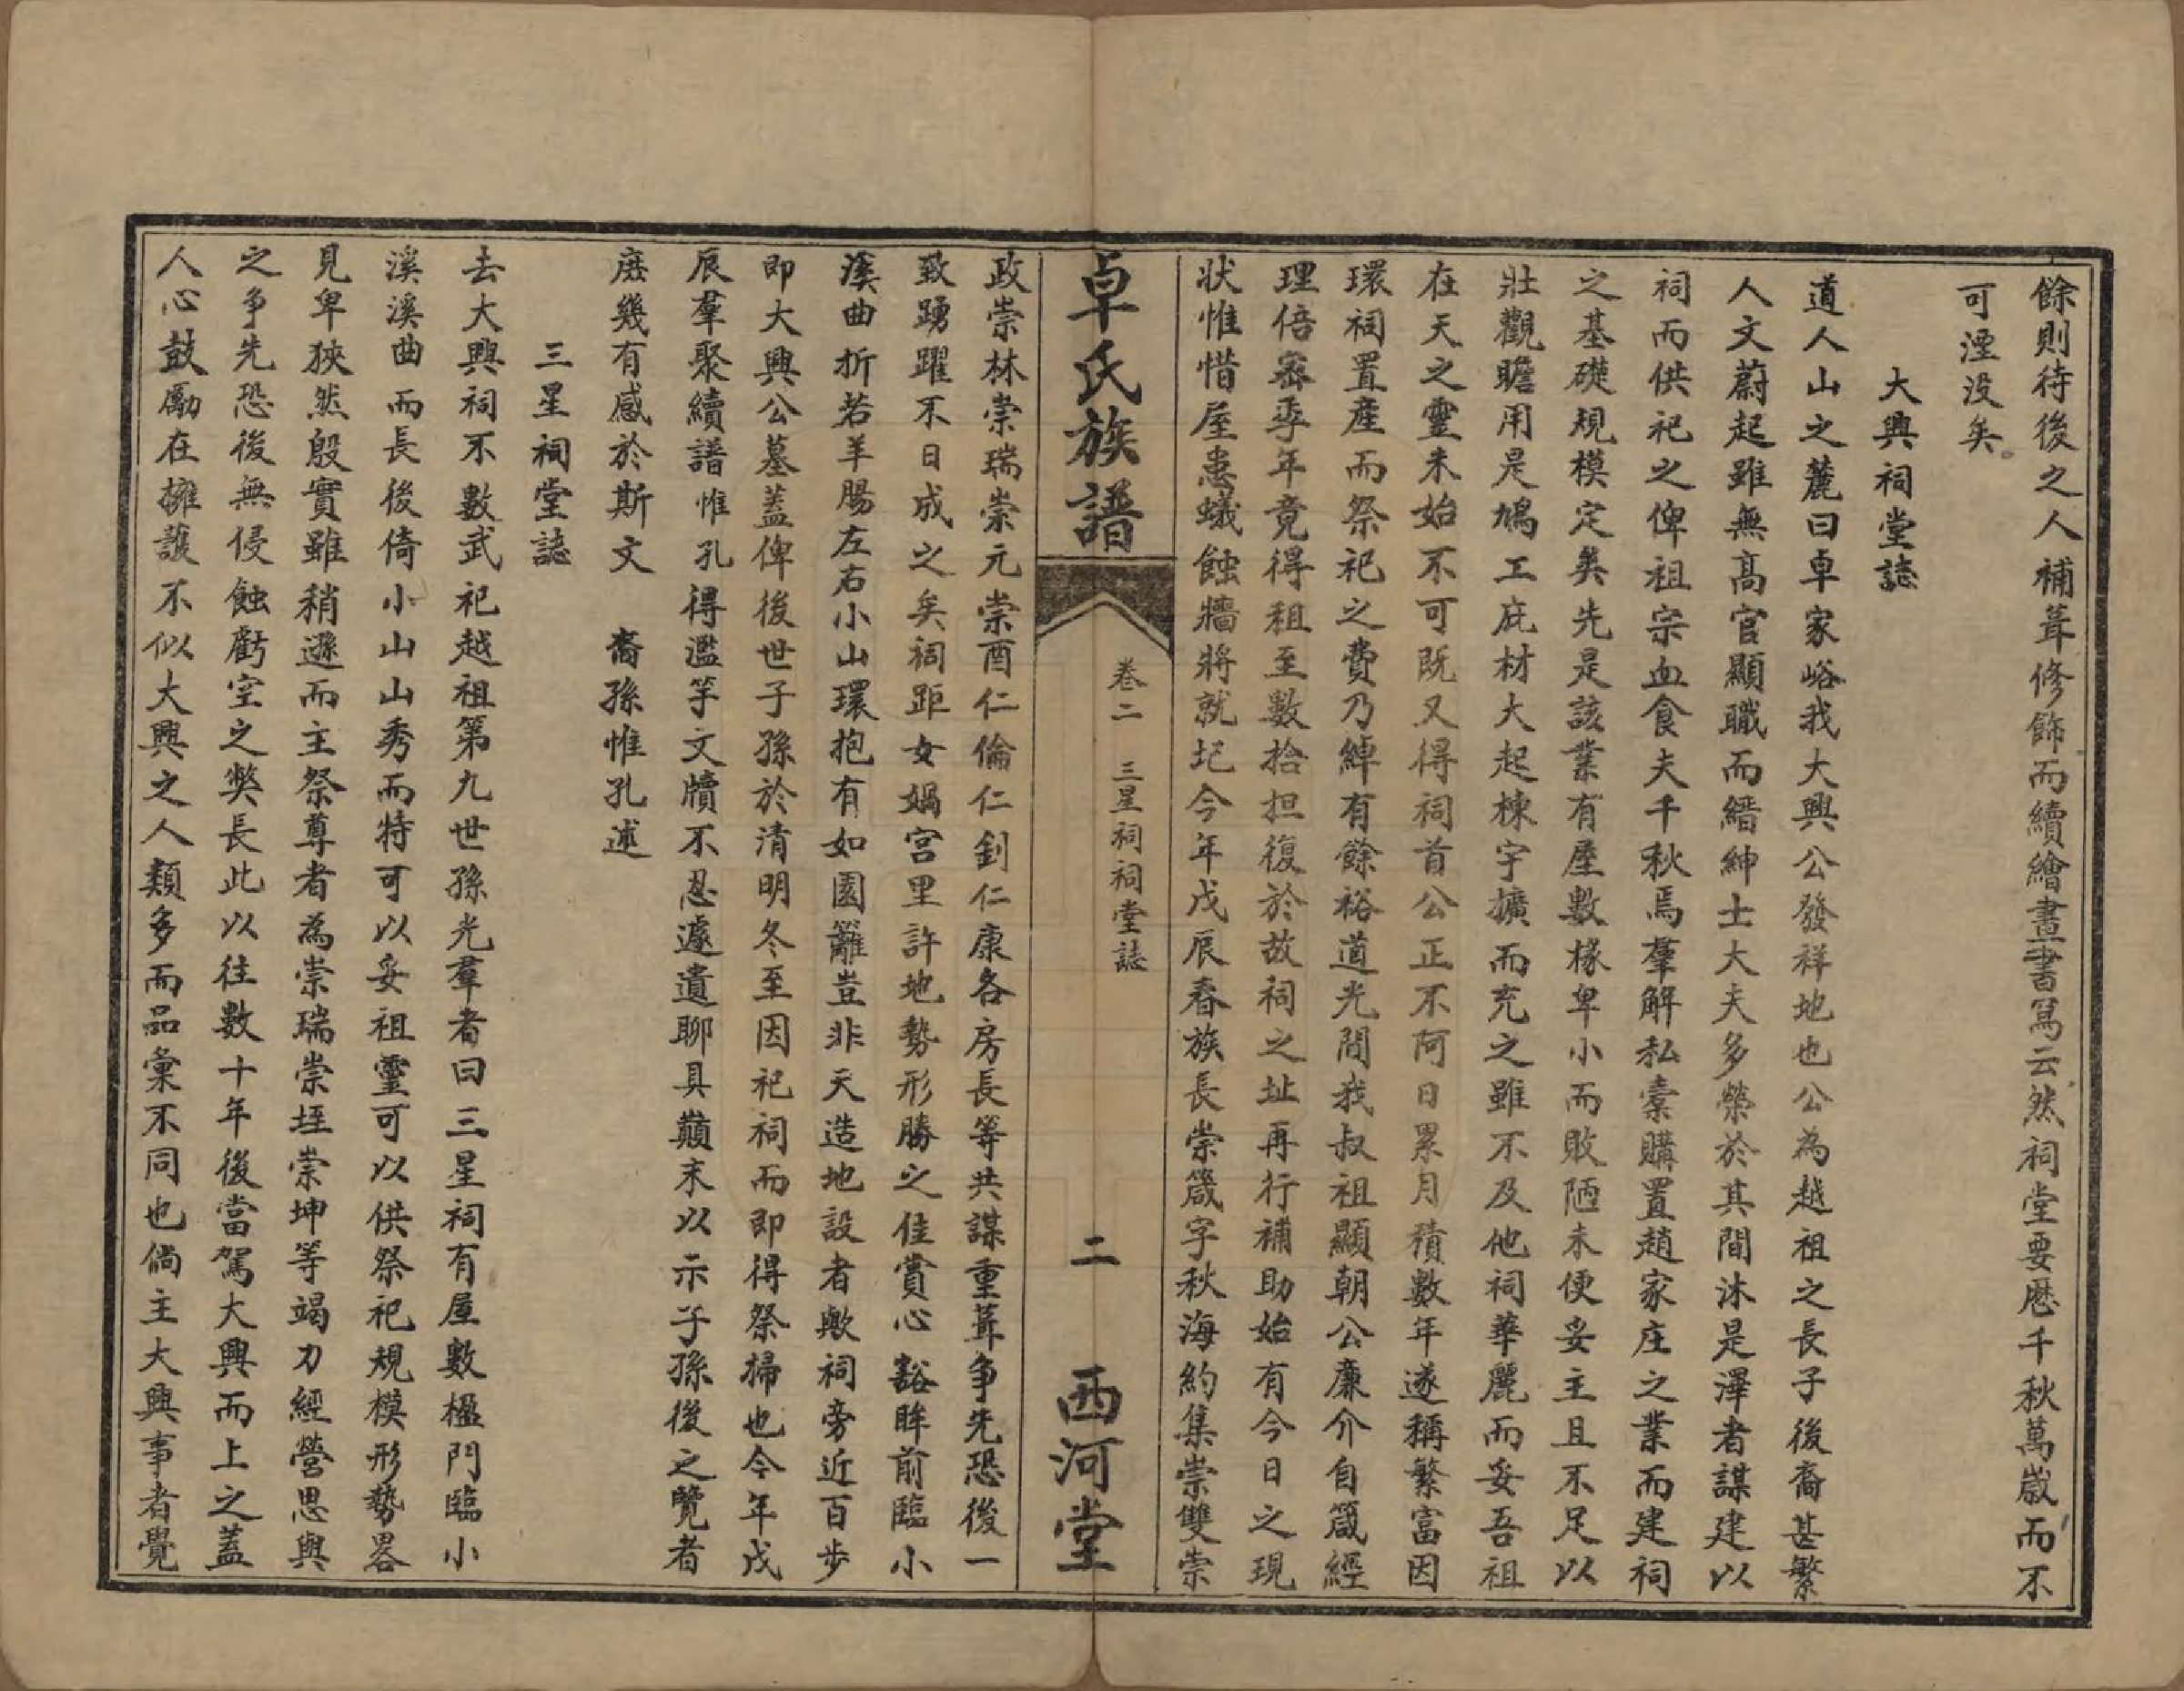 餘則待後之人補葺修飾而續繪畫書寫云然祠堂要歷千秋萬歲而不
可湮没矣
大興祠堂誌
道人山之麓曰卓家峪我大興公發祥地也公為越祖之長子後裔甚繁
人文蔚起雖無高官顯職而縉紳士大夫多榮於其間沐是澤者謀建以
祠而供祀之俾祖宗血食夫千秋焉羣解私橐購置趙家庄之業而建祠
之基礎規模定矣先是該業有屋數椽卑小而敗陋未便妥主且不足以
壯觀瞻用是鳩工庇材大起棟宇擴而充之雖不及他祠華麗而妥吾祖
在天之靈未始不可既又得祠首公正不阿日累月積數年遂稱繁富因
環祠置產而祭祀之費乃綽有餘裕道光間我叔祖顯朝公廉介自箴經
理倍密季年竟得租至數拾担復於故祠之址再行補助始有今日之現
狀惟惜屋患蟻蝕牆將就圮今年戊辰春族長崇箴字秋海約集崇雙崇
卓氏族譜
卷二 三星祠祠堂誌
二
西河堂
政崇林崇瑞崇元崇酉仁倫仁釗仁康各房長等共謀重葺争先恐後一
致踴躍不日成之矣祠距女媧宮里許地勢形勝之佳賞心豁眸前臨小
溪曲折若羊腸左右小山環抱有如園籬豈非天造地設者歟祠旁近百步
即大興公墓蓋俾後世子孫於清明冬至因祀祠而即得祭掃也今年戊
辰羣聚續譜惟孔得濫竽文牘不忍遽遺聊具巔末以示子孫後之覽者
庶幾有感於斯文 裔孫惟孔述
三星祠堂誌
去大興祠不數武祀越祖第九世孫光羣者曰三星祠有屋數楹門臨小
溪溪曲而長後倚小山山秀而特可以妥祖靈可以供祭祀規模形勢畧
見卑狹然殷實雖稍遜而主祭尊者為崇瑞崇垤崇坤等竭力經營思與
之争先恐後無侵蝕虧空之獘長此以往數十年後當駕大興而上之蓋
人心鼓勵在擁護不似大興之人類多而品彙不同也倘主大興事者覺